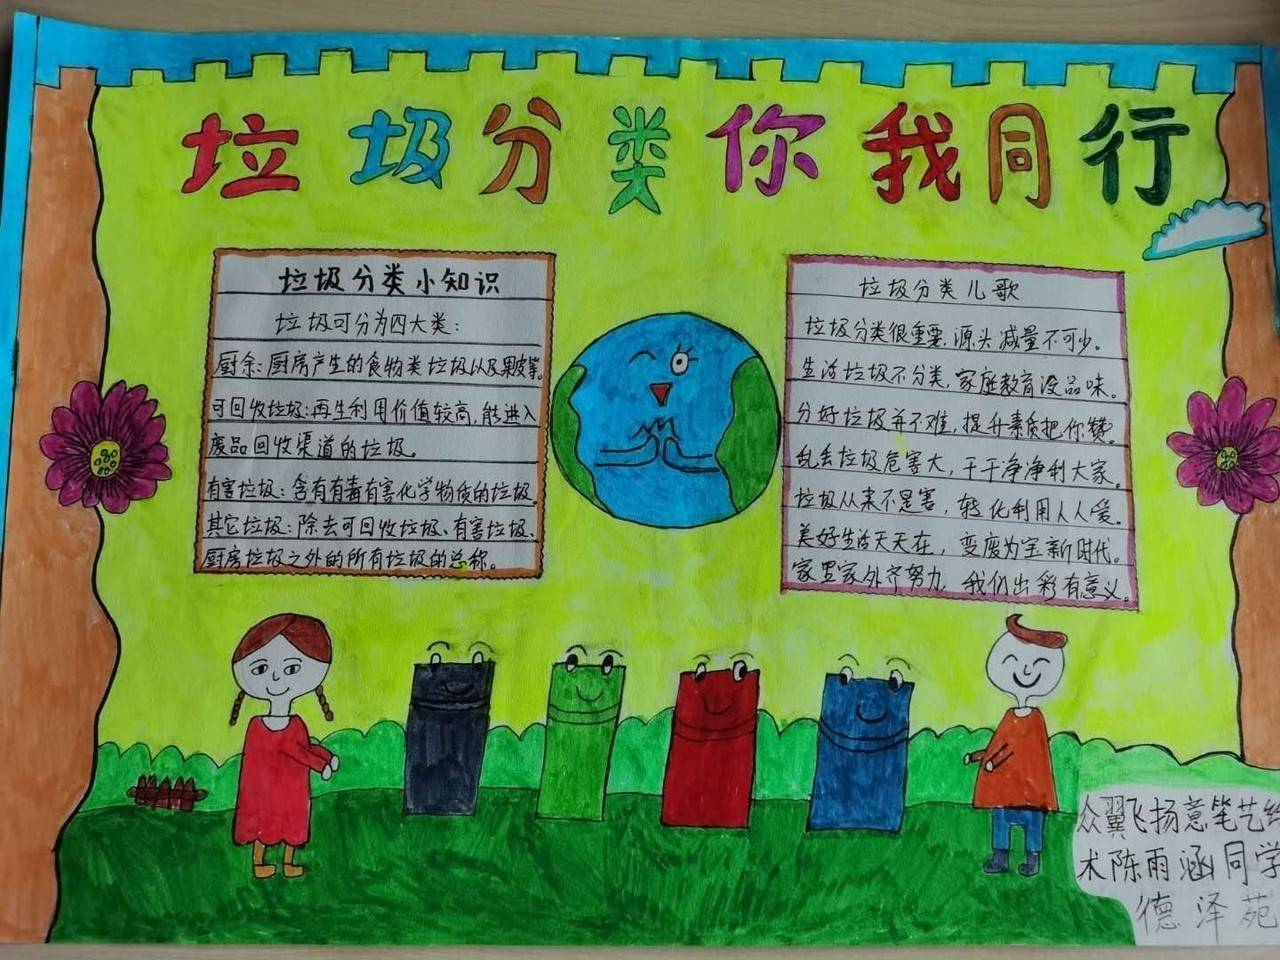 垃圾分类你我同行
垃圾分类小知识
垃圾可分为四大类：
厨余：厨房产生的食物类垃圾以及果皮等。
可回收垃圾：再生利用价值较高，能进入
废品回收渠道的垃圾。
有害垃圾：含有有毒有害化学物质的垃圾。
其它垃圾：除去可回收垃圾、有害垃圾、
厨房垃圾之外的所有垃圾的总称。
垃圾分类儿歌
垃圾分类很重要，源头减量不可少。
生活垃圾不分类，家庭教育没品味。
分好垃圾并不难，提升素质把你赞。
乱丢垃圾危害大，干干净净利大家。
垃圾从来不是害，转化利用人人爱。
美好生活天天在，变废为宝新时代。
家里家外齐努力，我们出彩有意义。
众翼飞扬意笔艺
术陈雨涵同学
德泽苑